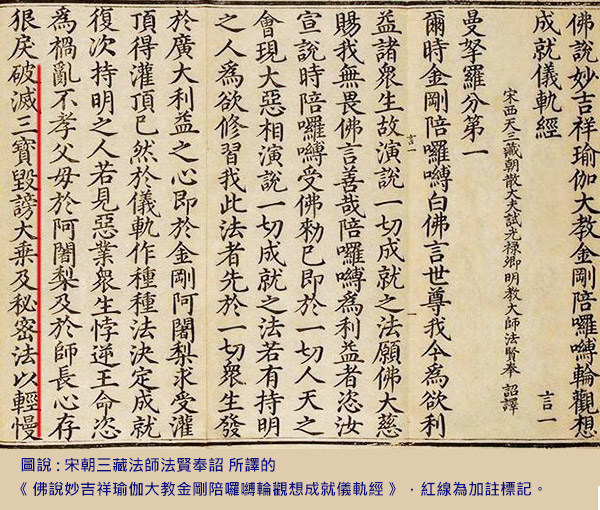 佛說妙吉祥瑜伽大教金剛陪囉嚩輪觀想
成就儀軌經 言一
宋西天三藏朝散大夫試光祿卿明教大師法賢奉 詔譯
曼拏羅分第一
爾時金剛陪囉嚩白佛言世尊我今為欲利
言一
益諸眾生故演說一切成就之法願佛大慈
賜我無畏佛言善哉陪囉嚩為利益者恣汝
宣說時陪囉嚩受佛勑已即於一切人天之
會現大惡相演說一切成就之法若有持明
之人為欲修習我此法者先於一切眾生發
於廣大利益之心即於金剛阿闍梨求受灌
頂得灌頂已然於儀軌作種種法決定成就
復次持明之人若見惡業眾生悖逆王命恣
為禍亂不孝父母於阿闍梨及於師長心存
很戾破滅三寶毀謗大乘及秘密法以輕慢
圖說 : 宋朝三藏法師法賢奉詔 所譯的
《 佛說妙吉祥瑜伽大教金剛陪囉嚩輪觀想成就儀軌經 》，紅線為加註標記。